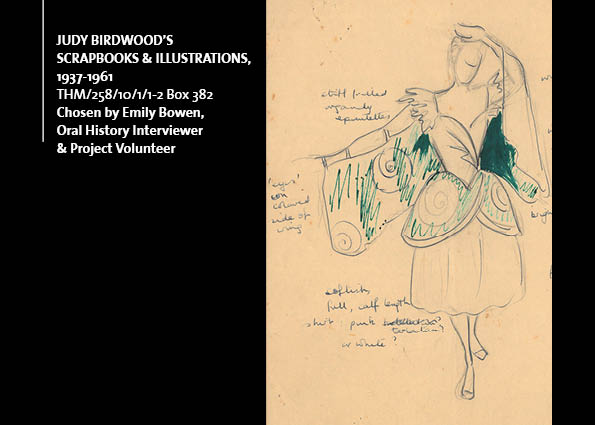 JUDY BIRDWOOD'S
SCRAPBOOKS & ILLUSTRATIONS,
1937-1961
THM/258/10/1/1-2 Box 382
Chosen by Emily Bowen,
Oral History Interviewer
& Project Volunteer
stiff frilled
organdy
epaulettes
'eyes'
on
coloured
side of
wing
full, calf length
skirt: pink
or white?